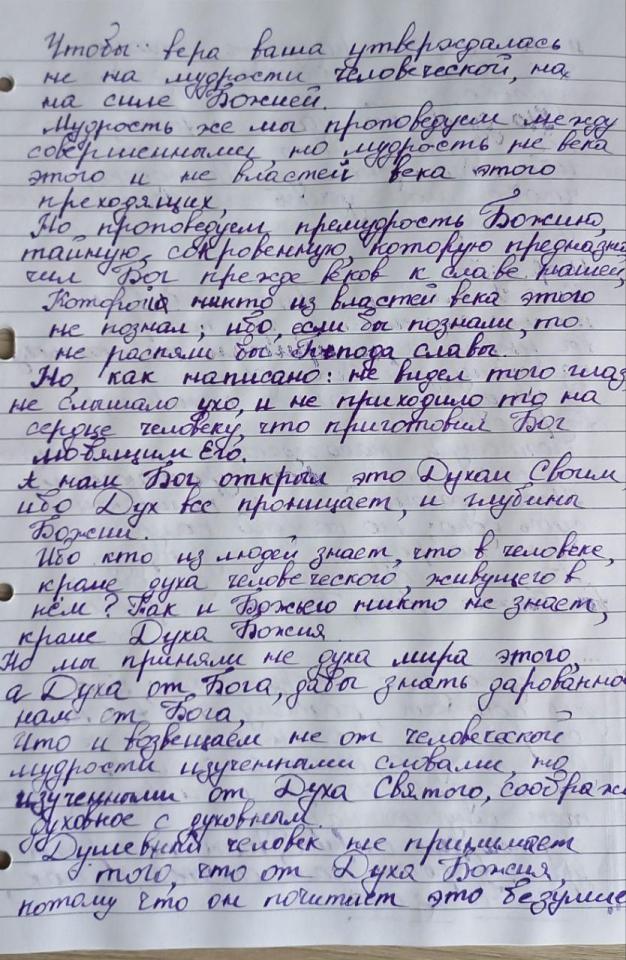 Чтобы вера ваша утверждалась
не на мудрости человеческой, на
на силе Божией.
Мудрость же мы проповедуем между
совершенными, но мудрость не века
этого и не властей века этого
преходящих,
Но проповедуем премудрость Божию,
тайную, сокровенную, которую предназна
чил Бог прежде веков к славе нашей,
Которой никто из властей века этого
не познал; ибо, если бы познали, то
не распяли бы Господа славы.
Но, как написано: не видел того глаз,
не слышало ухо, и не приходило то на
сердце человеку, что приготовил Бог
любящим Его.
А нам Бог открыл это Духом Своим,
ибо Дух все проницает, и глубины
Божии.
Ибо кто из людей знает, что в человеке,
кроме духа человеческого, живущего в
нём? Так и Божьего никто не знает,
кроме Духа Божия.
Но мы приняли не духа мира этого,
а Духа от Бога, дабы знать дарованно
нам от Бога,
Что и возвещаем не от человеческой
мудрости изученными словами, но
изученными от Духа Святого, соображ
духовное с духовным.
Душевный человек не принимает
того, что от Духа Божия,
потому что он почитает это безумие